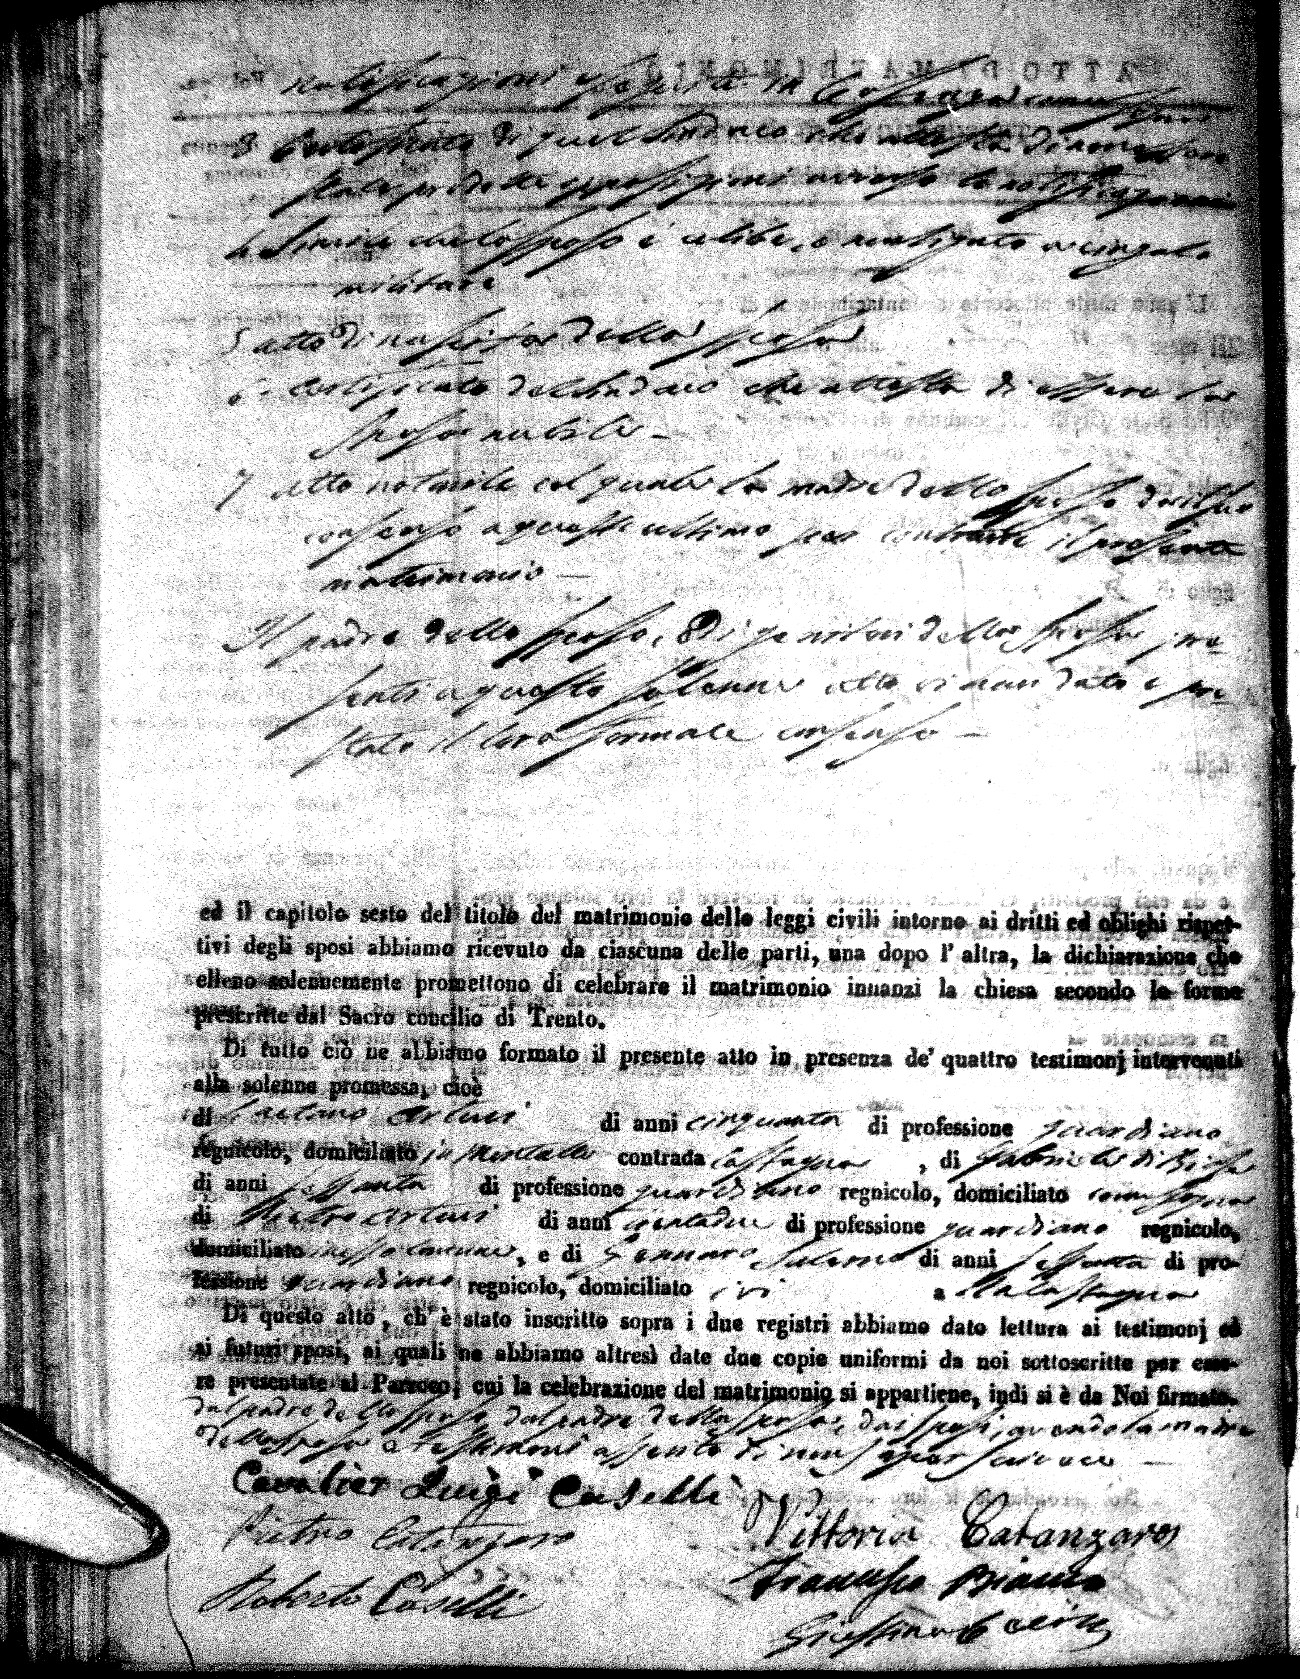 notificazioni eseguite in Cosenza
3 Certificato di quel Sindaco che attesta di non essere
state prodotte opposizioni avverso le notificazioni
4 Simile che lo sposo è celibe, e non ligato a cingolo
militare
5 atto di nascita della sposa
6 Certificato del Sindaco che attesta di essere la
sposa nubile
7 atto notarile col quale la madre dello sposo dà il suo
consenso a quest'ultimo per contrarre il presente
matrimonio
Il padre dello sposo, e di genitori della sposa pre-
senti a questo solenne atto vi han dato e pre-
stato il loro formale consenso
ed il capitolo sesto del titolo del matrimonio delle leggi civili intorno ai dritti ed oblighi rispet-
tivi degli sposi abbiamo ricevuto da ciascuna delle parti, una dopo l' altra, la dichiarazione che
elleno solennemente promettono di celebrare il matrimonio innanzi la chiesa secondo le forme
prescritte dal Sacro concilio di Trento.
Di tutto ciò ne abbiamo formato il presente atto in presenza de' quattro testimonj intervenuti
alla solenne promessa, cioè
di Gaetano Arturi di anni cinquanta di professione guardiano
regnicolo, domiciliato in Montalto contrada Castagna, di Gabriele di
di anni sessanta di professione guardiano regnicolo, domiciliato come sopra
di Pietro Arturi di anni di professione guardiano regnicolo,
domiciliato stesso comune, e di Gennaro Salerno di anni sessanta di pro-
fessione guardiano regnicolo, domiciliato ivi a la Castagna
Di questo atto, ch' è stato inscritto sopra i due registri abbiamo dato lettura ai testimonj ed
ai futuri sposi, ai quali ne abbiamo altresì date due copie uniformi da noi sottoscritte per esse-
re presentate al Parroco, cui la celebrazione del matrimonio si appartiene, indi si è da Noi firmato.
dal padre dello sposo, dal padre della sposa, dai sposi, avendo la madre
della sposa e testimoni assento di non saper scrivere
Cavalier Luigi Caselli
Pietro Catanzaro Vittoria Catanzaro
Roberto Caselli Francesco Bianco